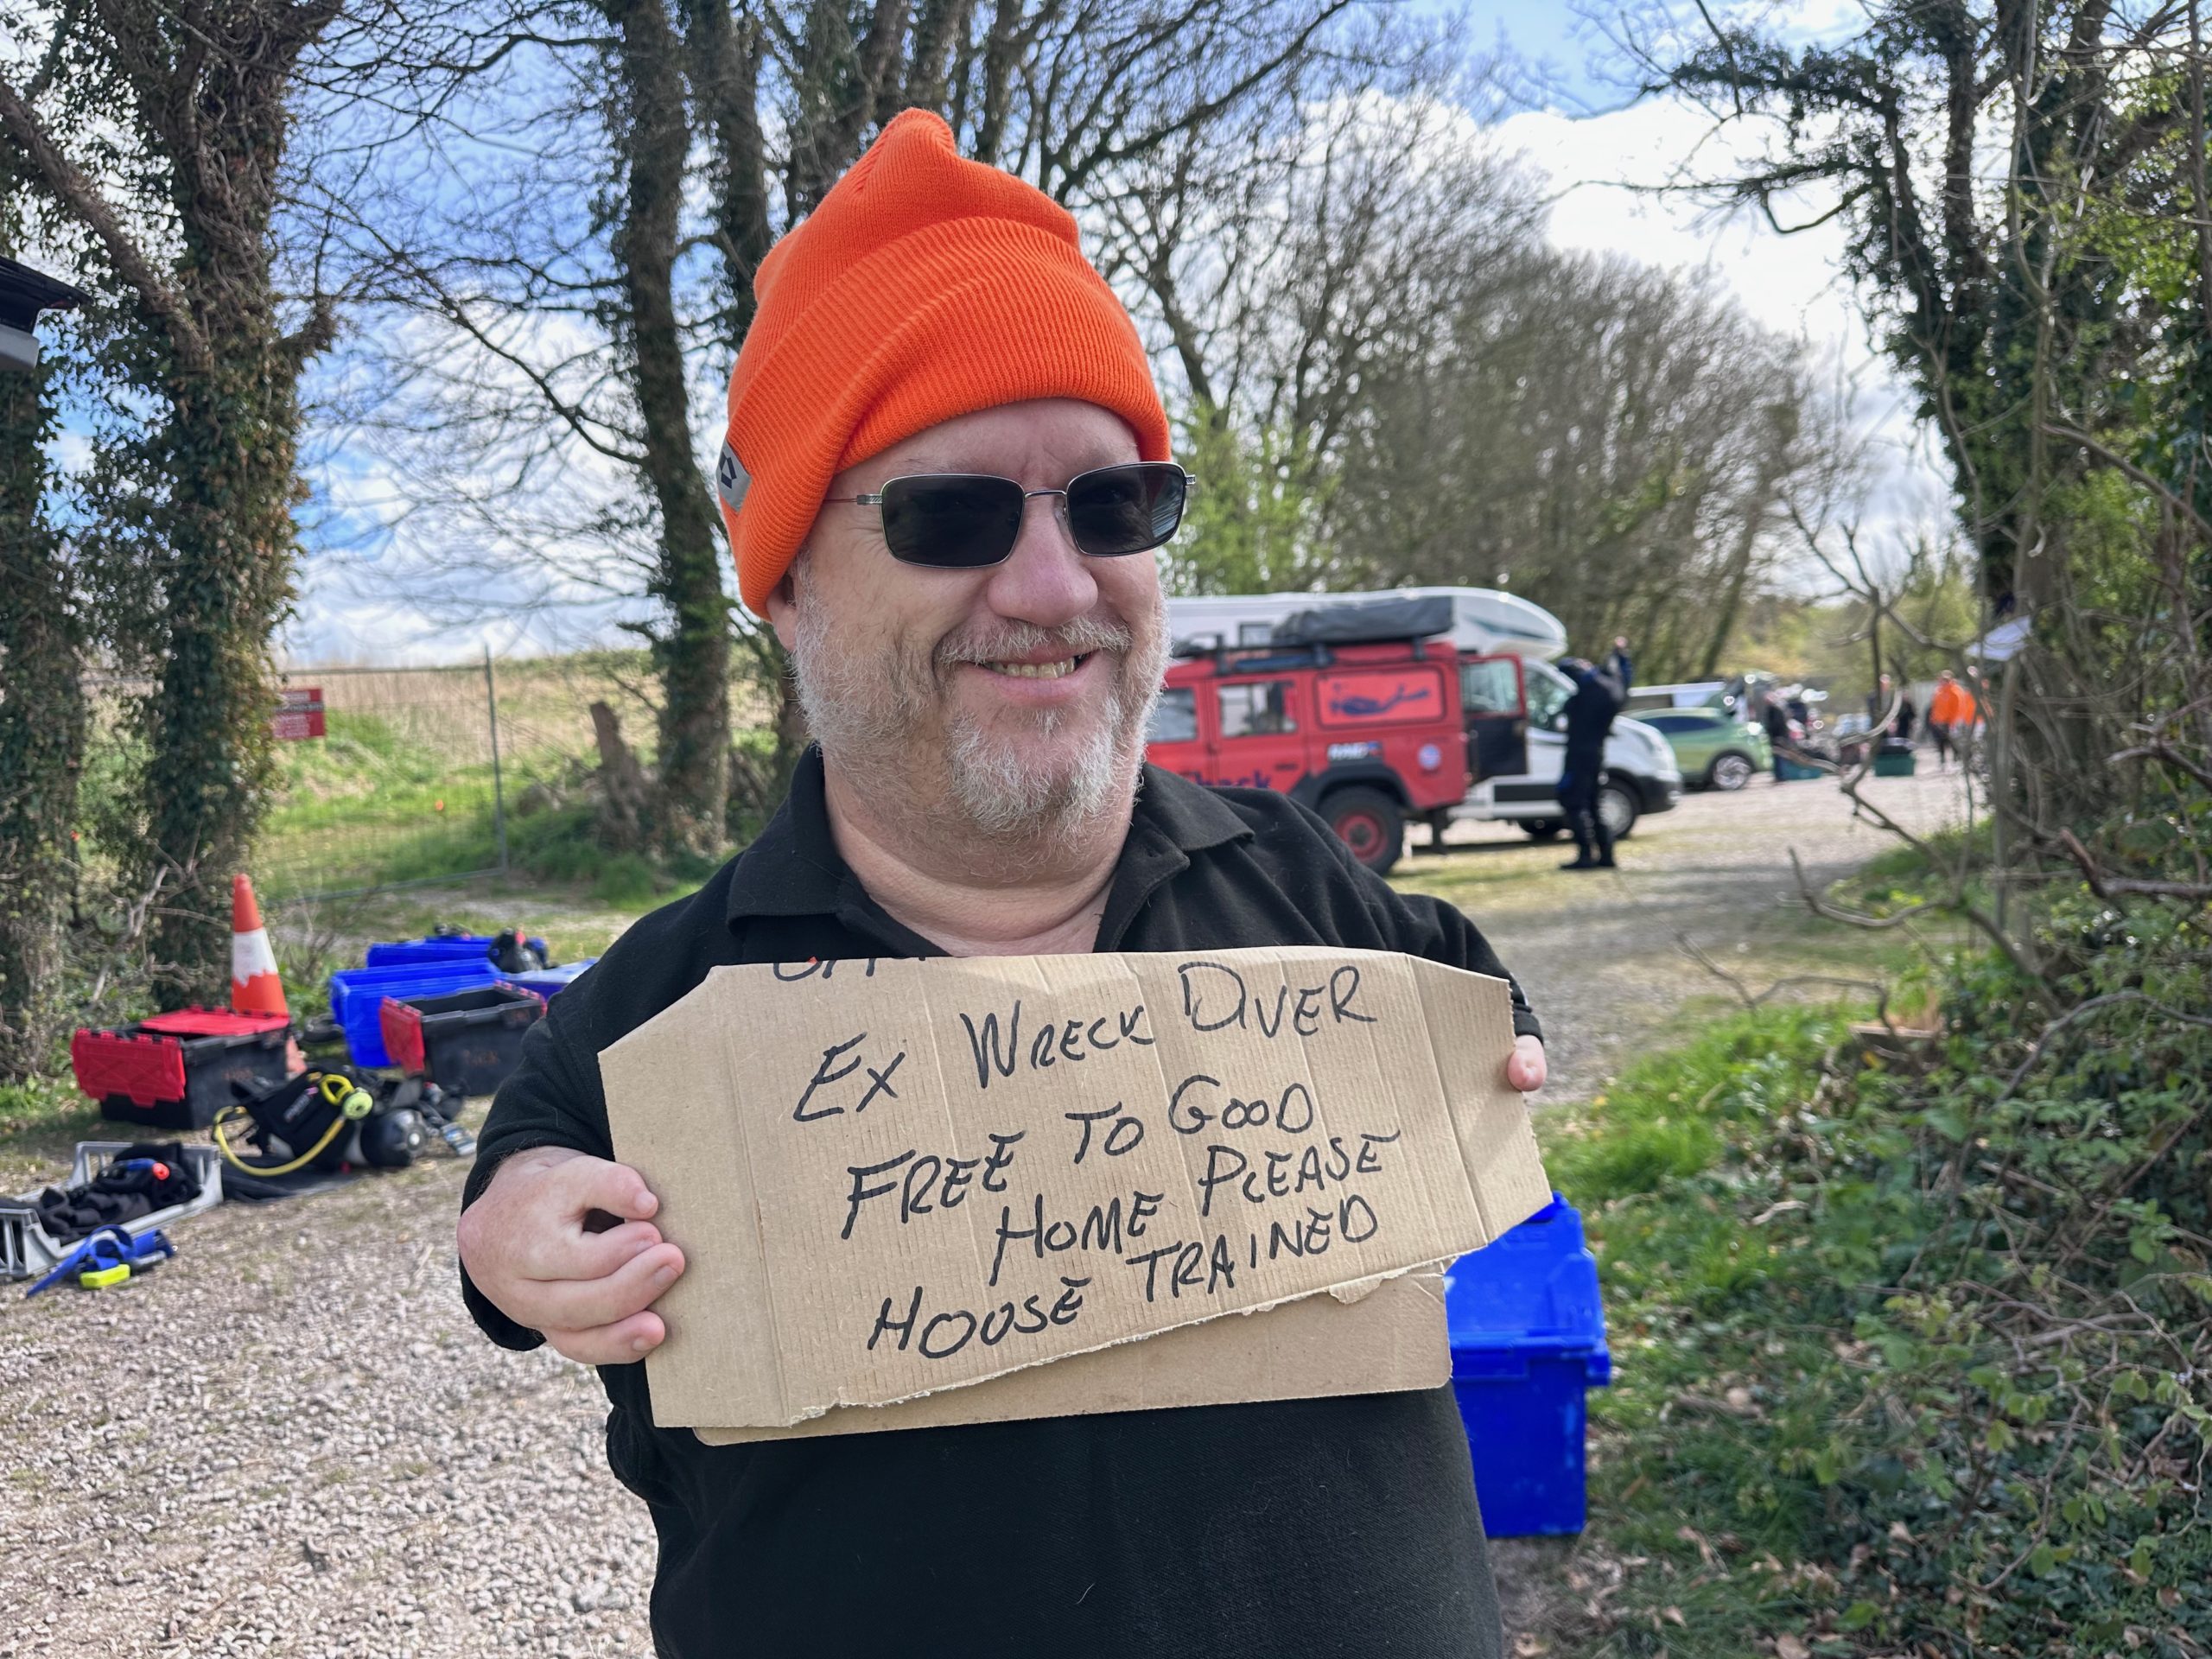 Ex WRECK DIVER
FREE TO GOOD
HOME PLEASE
HOUSE TRAINED